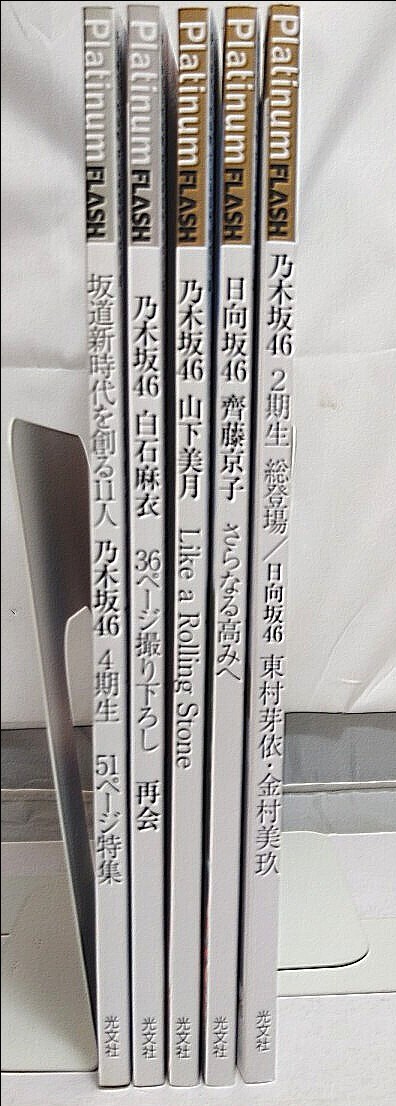 Platinum FLASH 坂道新時代を創る11人 乃木坂46 4期生 51ページ特集 光文社
Platinum FLASH 乃木坂46 白石麻衣 36ページ撮り下ろし 再会 光文社
Platinum FLASH 乃木坂46 山下美月 Like a Rolling Stone 光文社
Platinum FLASH 日向坂46 齊藤京子 さらなる高みへ 光文社
Platinum FLASH 乃木坂46 2期生 総登場／日向坂46 東村芽依・金村美玖 光文社